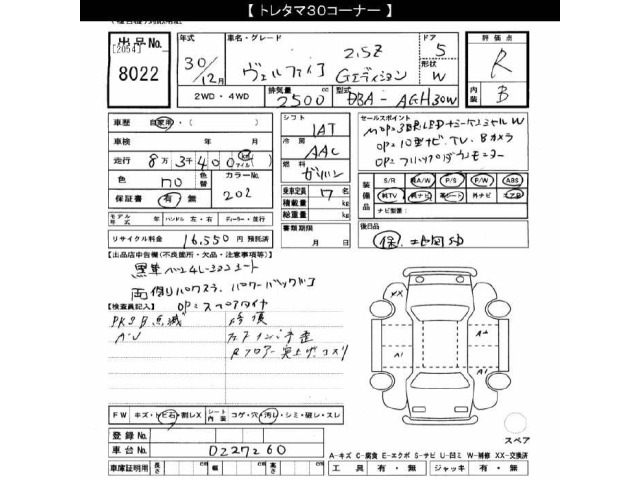 【 トレタマ30コーナー 】
出品No.
[2054]
8022
年式
30/12月
車名・グレード
ヴェルファイア
2.5Z
Gエディション
ドア
5
形状
W
評価点
R
内装
B
2WD・4WD
排気量
2500 cc
型式
DBA - AGH30W
車歴 自家用・( )
車検 年 月
走行 8万3千400 km マイル
色 クロ 色替 カラーNo. 202
保証書 有・無
モデル年式 年 ハンドル 左・右 ディーラー・並行
リサイクル料金 16,550円 預託済
シフト
IAT
冷房
AAC
燃料
ガソリン
乗車定員 7 名
積載量 kg
総重量 kg
書類期限
月 日
セールスポイント
OP=10型ナビ.TV.Bカメラ
OP=フリップダウンモニター
装備品
S/R A/W P/S P/W ABS
純TV 純ナビ 革シート 外ナビ エアB
ナビ型番:
後日品
保.
【出品店申告欄(不良箇所・欠品・注意事項等)】
両側パワスラ. パワーバックドア
【検査員記入】 OP=スペアタイヤ
PKSB点滅
Rフロアー突上げ.コスリ
FW キズ・トビ石・割レX シート内装 コゲ・穴・汚レ・シミ・破レ・スレ
登録No.
車台No. 0227260
車庫証明用 長さ cm 幅 cm 高さ cm
XX
A1
A2
A1
スペア
A-キズ C-腐食 E-エクボ S-サビ U-凹ミ W-補修 XX-交換済
工具 有・無 ジャッキ 有・無